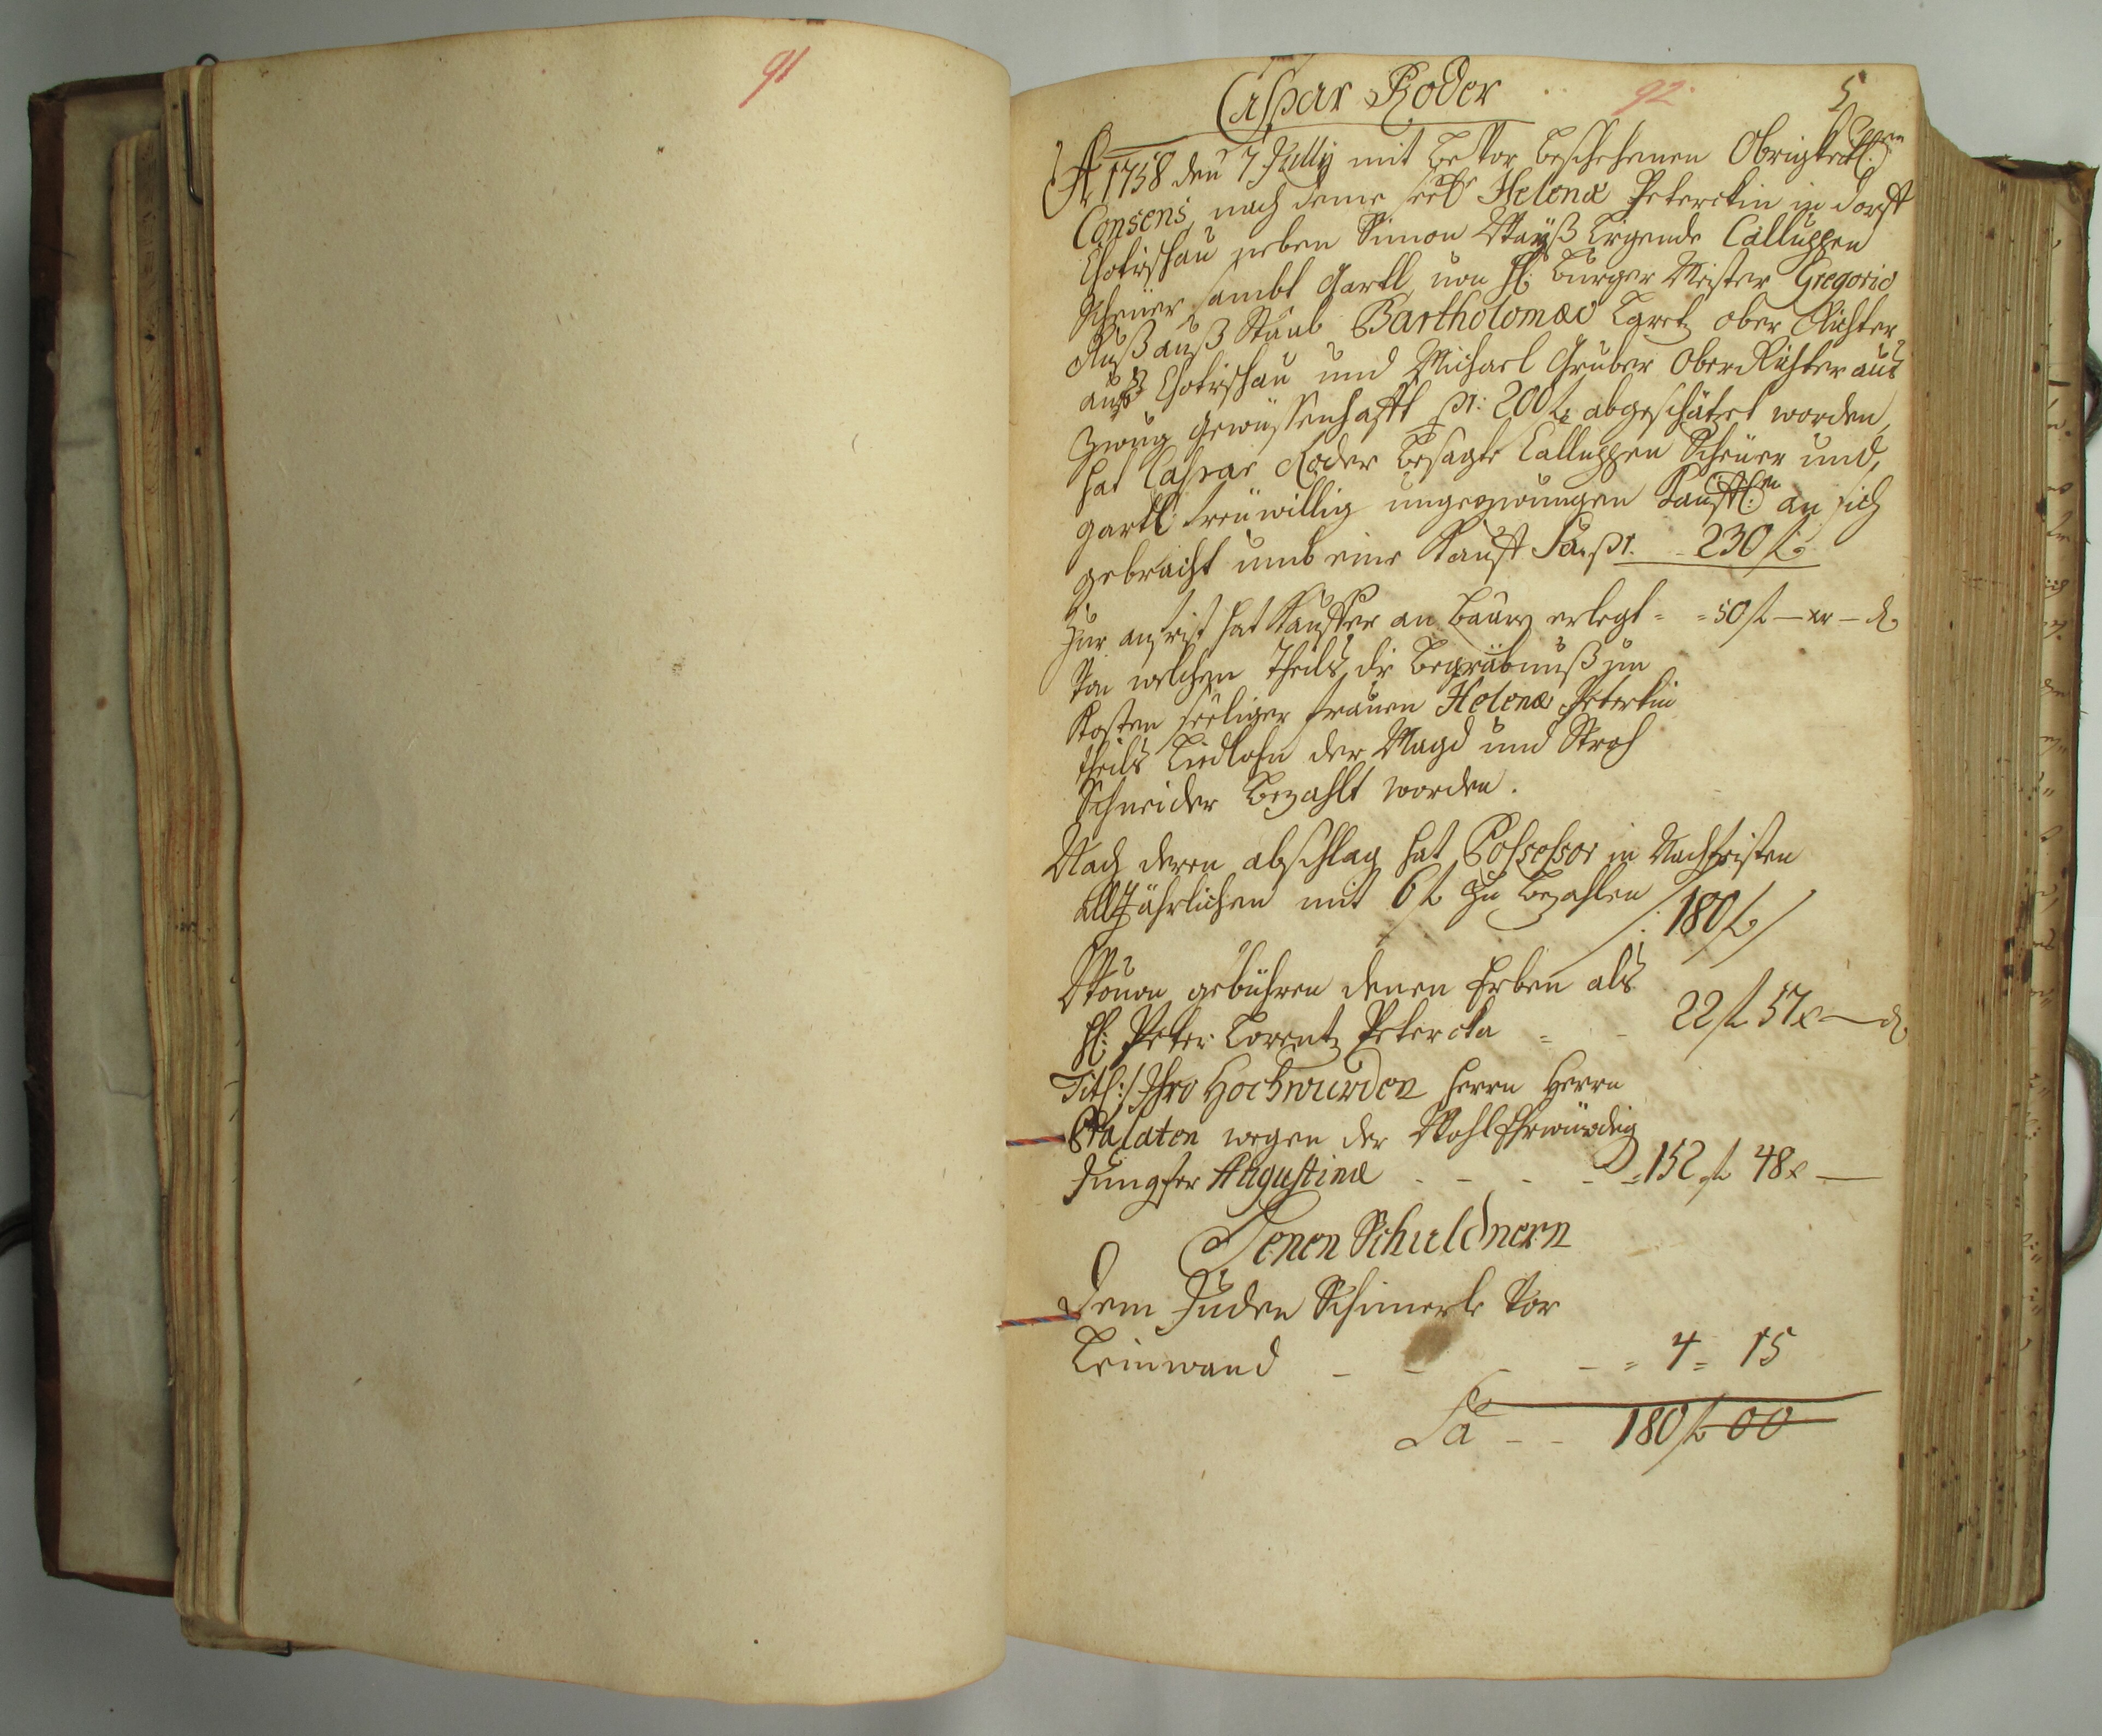 91
Caspar Roder
92
5
A 1758 den 7 Jully mit bevor beschehenen Obrigkeitl:en
Consens, nach deme seel. Helena Peterckin in dorff
Chotischau neben Simon Wayß ligende Calluppen
Scheüer sambt gartl, von H: Burger Meister Gregorio
Ruß auß Staab Bartholomæo ober Richter
auß Chotischau und Michael Gruber Ober Richter aus
Zwug gewüssenhafft pr: 200 f. abgeschätzet worden,
hat Caspar Roder besagte Calluppen Scheüer und,
gartl: freüwillig ungezwungen kauffl:en an sich
gebracht umb eine Kauff Sa. pr. - 230 f.
Zur anfrist hat Kauffer an baarn erlegt = = 50 f — xr — d.
Von welchem theils die begräbnuß un
Kosten seeliger frauen Helena Peterkin
theils Liedlohn der Magd und Stroh
Schneider bezahlt worden.
Nach deren abschlag hat Possessor in Nachfristen
alljährlichen mit 6 f zu bezahlen /: 180 f /
Wovon gebühren denen Erben als
H: Peter Lorentz Petercka = - 22 f 57 x — d.
Titl:/ Ihro Hochwürden herrn Herrn
Prælaten wegen der Wohl Ehrwürdig
Jungfer Augustina - - - - = 152 f 48 x —
Denen Schuldnern
Dem Juden Schmerle vor
Leinwand - - - - = 4 = 15
Sa - - 180 f 00